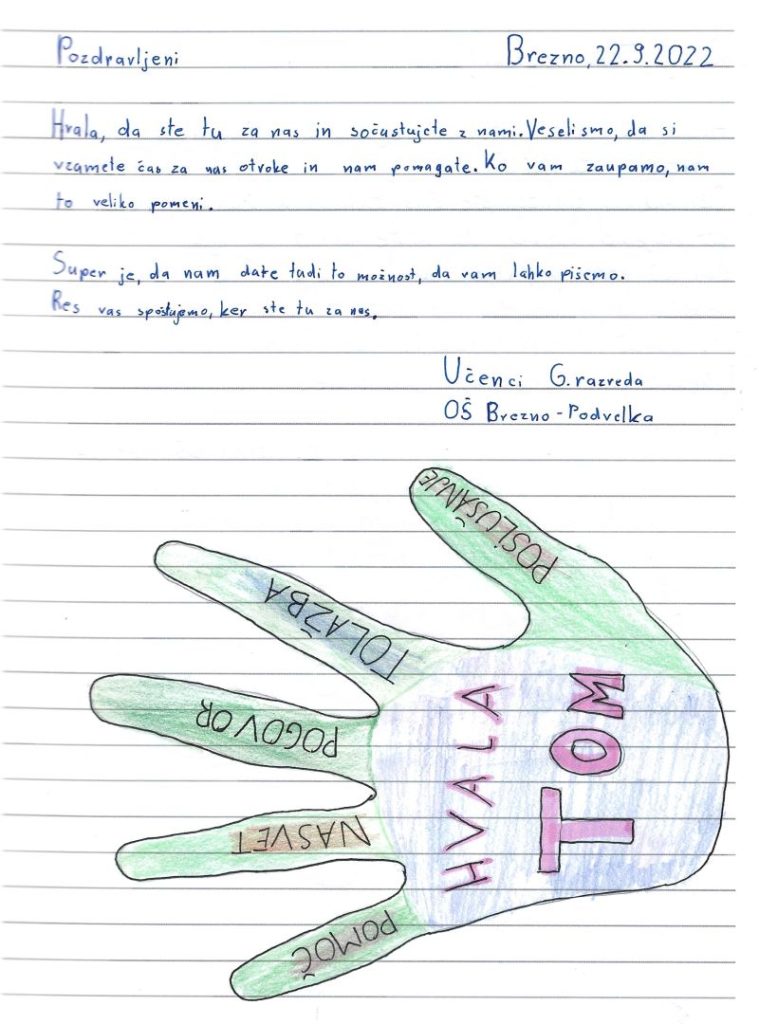 Pozdravljeni
Brezno, 22.9.2022
Hvala, da ste tu za nas in sočustujete z nami. Veseli smo, da si
vzamete čas za nas otroke in nam pomagate. Ko vam zaupamo, nam
to veliko pomeni.
Super je, da nam date tudi to možnost, da vam lahko pišemo.
Res vas spoštujemo, ker ste tu za nas.
Učenci 6. razreda
OŠ Brezno - Podvelka
POSLUŠANJE
TOLAŽBA
POGOVOR
NASVET
POMOČ
HVALA
TOM